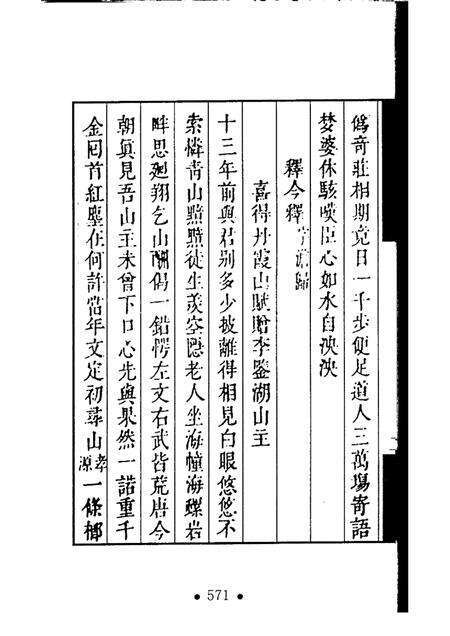 為奇莊相期竟日一千步便足道人三萬場寄語
焚婆休駭嘆臣心如水自泱泱
釋今釋字澹歸
喜得丹霞山賦贈李鑒湖山主
十三年前與君別多少披離得相見白眼悠悠不
索憐青山點點徒生羨空隱老人坐海幢海螺岩
畔思廻翔乞山酬偈一錯愕左文右武皆荒唐今
朝眞見吾山主未曾下口心先與果然一諾重千
金回首紅塵在何許當年文定初尋山孝源一條榔
571